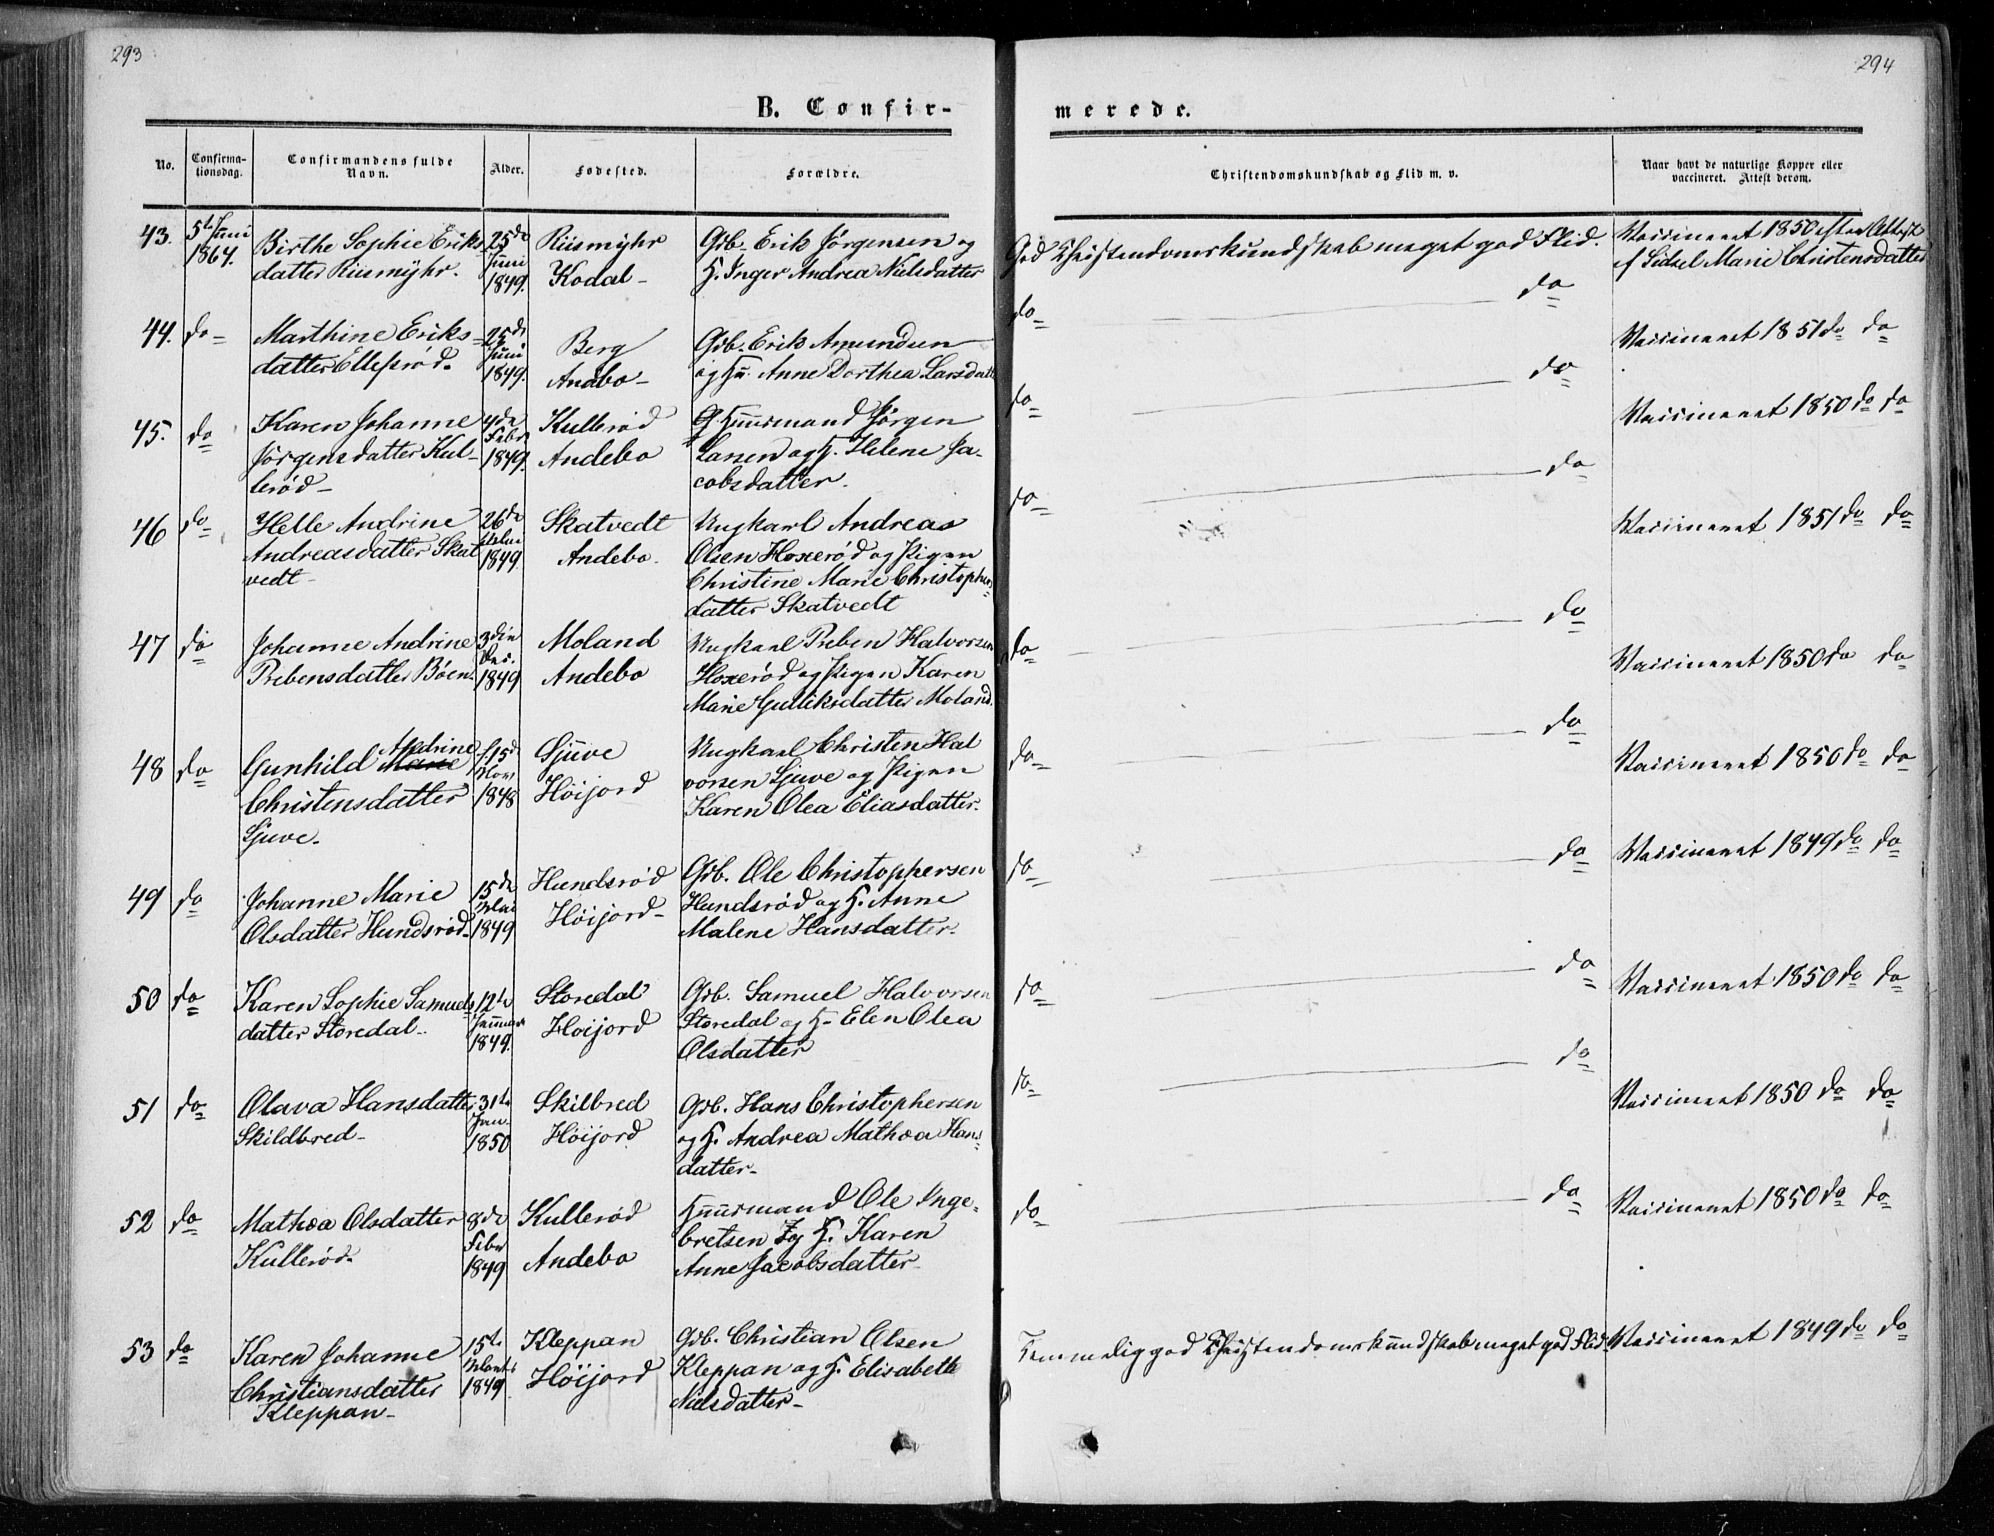 293
294
B. Confir-
merede.
No.
Confirma-
tionsdag.
Confirmandens fulde
Navn.
Alder.
Fødested.
Forældre.
Christendomskundskab og Flid m. v.
Naar havt de naturlige Kopper eller
vaccineret. Attest derom.
43. 5te Juni 1864. Birthe Sophie Eriks 25de Juni 1849. Riismyhr Gdb. Erik Jørgensen og God Christendomskundskab meget god Flid. Vaccineret 1850 efter Attest
datter Riismyhr. Kodal- H. Inger Andrea Nielsdatter af Sidsel Marie Christensdatter
44. do Marthine Eriks- 25de Juni 1849. Berg Gdb. Erik Amundsen do do Vaccineret 1851 do do
datter Ellefsrød. Andebo- og Hu. Anne Dorthea Larsdatt
45. do Karen Johanne 4de Febr 1849. Kullerød Huusmand Jørgen do do Vaccineret 1850 do do
Jørgensdatter Kul- Andebo Larsen og H. Helene Ja-
lerød- cobsdatter.
46 do Helle Andrine 26de Mai 1849 Skatvedt Ungkarl Andreas do do Vaccineret 1851 do do
Andreasdatter Skat Andebo. Olsen Hoxerød og Pigen
vedt- Christine Marie Christophers-
datter Skatvedt
47 do Johanne Andrine 3die Dec. 1849 Moland Ungkarl Preben Halvorsen do do Vaccineret 1850 do do
Prebensdatter Bøen. Andebo Hoxerød og Pigen Karen
Marie Gulliksdatter Moland.
48 do Gunhild Andrine Marie 15de Nov 1848 Sjuve Ungkarl Christen Hal do do Vaccineret 1850 do do
Christensdatter Höijord vorsen Sjuve og Pigen
Sjuve. Karen Olea Eliasdatter.
49 do Johanne Marie 15de Mai 1849 Hundsrød Gdb. Ole Christophersen do do Vaccineret 1849 do do
Olsdatter Hundsrød. Höijord- Hundsrød og H. Anne
Malene Hansdatter.
50 do Karen Sophie Samuels 12te Januar 1849. Storedal Gdb. Samuel Halvorsen do do Vaccineret 1850 do do
datter Storedal. Höijord Storedal og H. Elen Olea
Olsdatter
51 do Olava Hansdatter 31te Jan 1850 Skilbred Gdb. Hans Christophersen do do Vaccineret 1850 do do
Skildbred- Höijord og H. Andrea Mathea Hans
datter-
52 do Mathea Olsdatter 8de Febr 1849 Kullerød Huusmand Ole Inge- do do Vaccineret 1850 do do
Kullerød. Andebo bretsen og H. Karen
Anne Jacobsdatter
53 do Karen Johanne 15te Marts 1849 Kleppan Gdb. Christian Olsen Temmelig god Christendomskundskab meget god Flid. Vaccineret 1849 do do
Christiansdatter Höijord Kleppan og H. Elisabeth
Kleppan- Nielsdatter-